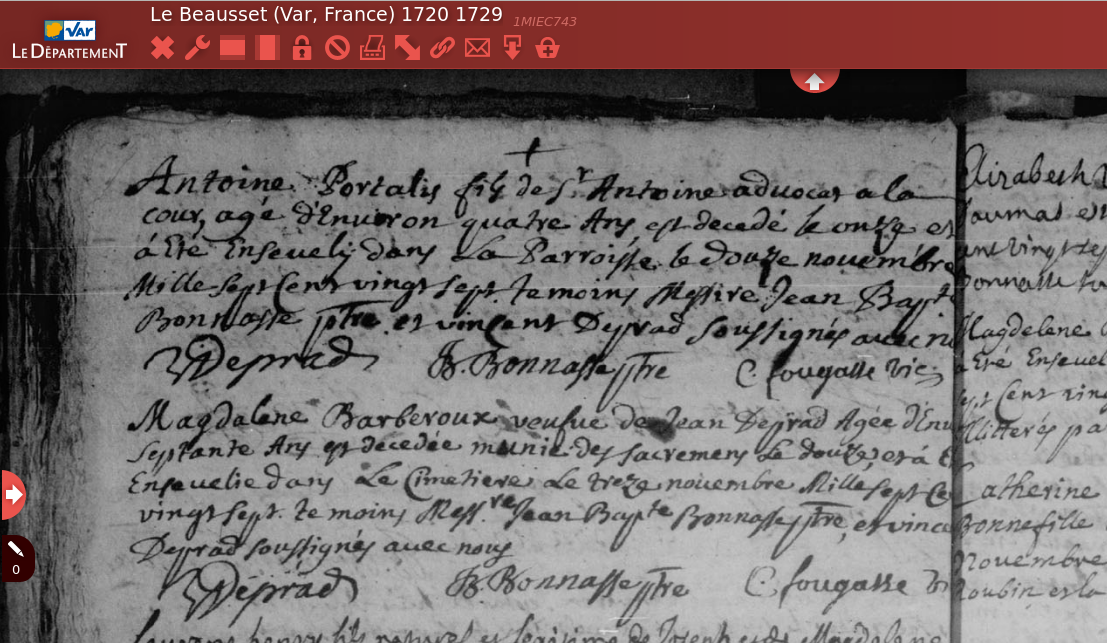 Le Beausset (Var, France) 1720 1729
1MIEC743
VAR
LE DÉPARTEMENT
Antoine Portalis fils de Sr Antoine advocat a la
cour, agé d'Environ quatre Ans est decedé le onze et
á Eté Enseveli dans La Parroisse le douze novembre
Mille Sept Cent vingt Sept. temoins Messire Jean Bapte
Bonnasse ptre et vincent Deprad soussignés avec n
V Deprad J B. Bonnasse ptre C. fougasse vic.
Magdalene Barberoux veufue de Jean Deprad Agée d'Env
Septante Ans est decedée munie des sacremens Le douze, et á E
Ensevelie dans Le Cimetiere Le treze novembre Mille Sept Ce
vingt Sept. temoins Messre Jean Bapte Bonnasse ptre, et vince
Deprad soussignés avec nous
V Deprad J B. Bonnasse ptre C. fougasse
Elizabeth
Magdelene
a Eté Ensevel
Cent ving
Illiterés pa
atherine
Bonnefille
Novembre
0